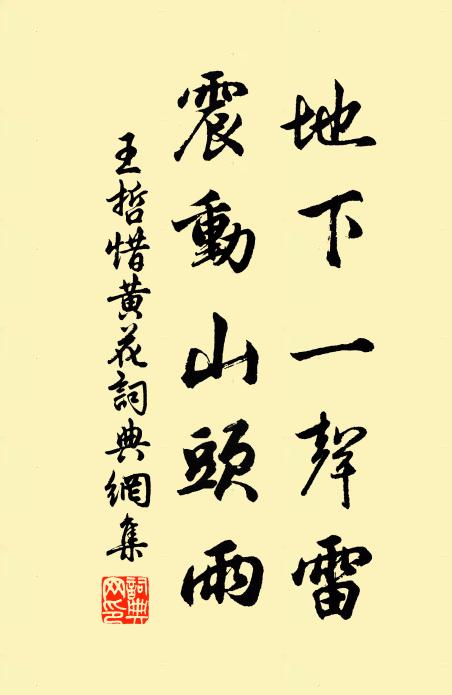 地下一聲雷
震動山頭雨
王哲惜黄花詞典網集
詞典網印